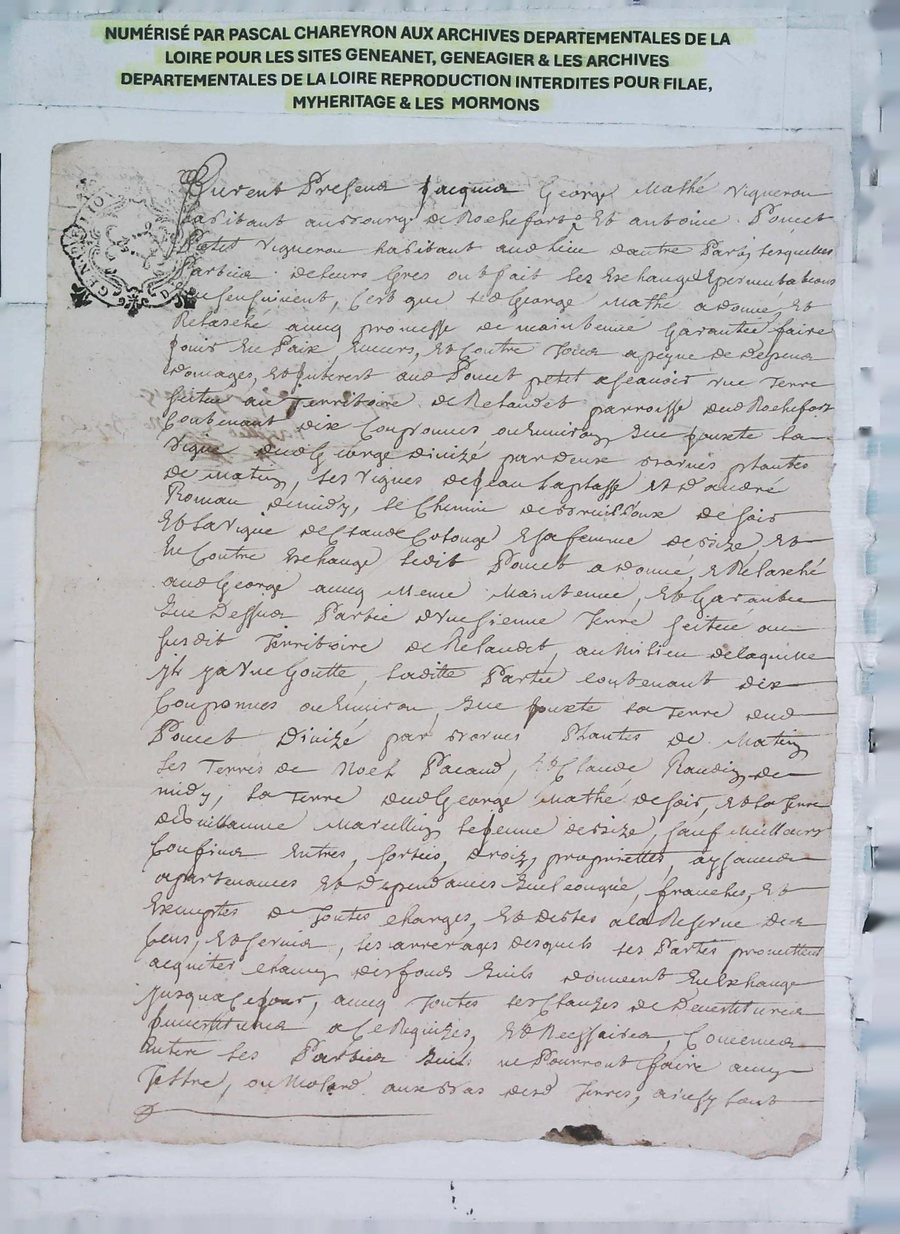 NUMÉRISÉ PAR PASCAL CHAREYRON AUX ARCHIVES DEPARTEMENTALES DE LA
LOIRE POUR LES SITES GENEANET, GENEAGIER & LES ARCHIVES
DEPARTEMENTALES DE LA LOIRE REPRODUCTION INTERDITES POUR FILAE,
MYHERITAGE & LES MORMONS
furent Presens George Mathé Vigneron
habitant au bourg de Rochefort Et antoine Poncet
Petit Vigneron habitant aud lieu dautre Part, lesquelles
Parties de leurs Gres ont fait les Exchange
que sensuivent, C'est que led George Mathé a donné, Et
Relasché aucq promesse de maintenue Garantie faire
jouir En Paix Enuers, Et Contre Tous a peyne de Depens
Domages, Et jnterest aud Poncet petit a sçauoir vne Terre
scituée au Territoire de Relaudet parroisse dud Rochefort
Contenant dix Couponnes ou Enuiron, que jouxte la
Vigne dud George divizé par deux bornes plantes
de Matin, les Vignes de jean Laplasse Et d'andré
Roman de midy, le Chemin de de soir
Et la Vigne de Claude Colonge Et sa femme de bize, Et
En Contre Exchange ledit Poncet a donné, Et Relasché
aud George aucq Meme Maintenue, Et Garantie
que Dessus Partie d'vne sienne Terre scituée au
susdit Territoire de Relaudet, au Milieu de laquelle
jl y a vne Goutte, laditte Partie contenant dix
Couponnes ou Enuiron, que jouxte la Terre dud
Poncet Divizé par bornes Plantes de Matin
les Terres de Noel Pacaud, Et Claude de
midy, la Terre dud George Mathé de soir, Et la Terre
de Guillaume Marcellin de bize, sauf Meilleurs
Confins Entres, sorties, droiz, proprietés, aysances
apartenances Et Dependances quelconque, franches, Et
Exemptes de Toutes charges, Et dettes a la Reserve des
Cens, Et seruis, les arrerages desquels les Parties promettent
acquiter chacun des fonds quils donnent En Exchange
jusqua Ce jour, aucq Toutes les Clauzes de Deuestitures
jnuestitures a Ce Requizes, Et Necessaires, Conuenu
Entre les Parties quils ne Pourront faire aucun
Tertre, ou Molard aux bas desd Terres, ainsy tout